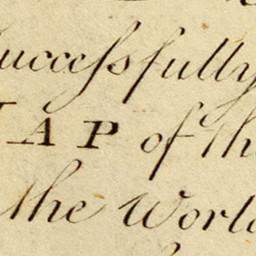 ucceſsfully
AP of th
the Worl